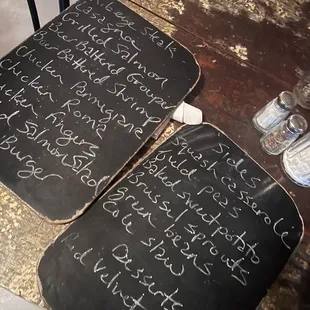 Steak
Lasagna
Grilled Salmon
Beer Battered Grouper
Beer Battered Shrimp
Chicken Parmigiana
Chicken Roma
Chicken Fingers
Salmon Salad
Burger
Sides
Squash casserole
peas
Baked sweet potato
Brussel sprouts
green beans
Cole slaw
Desserts
Red Velvet